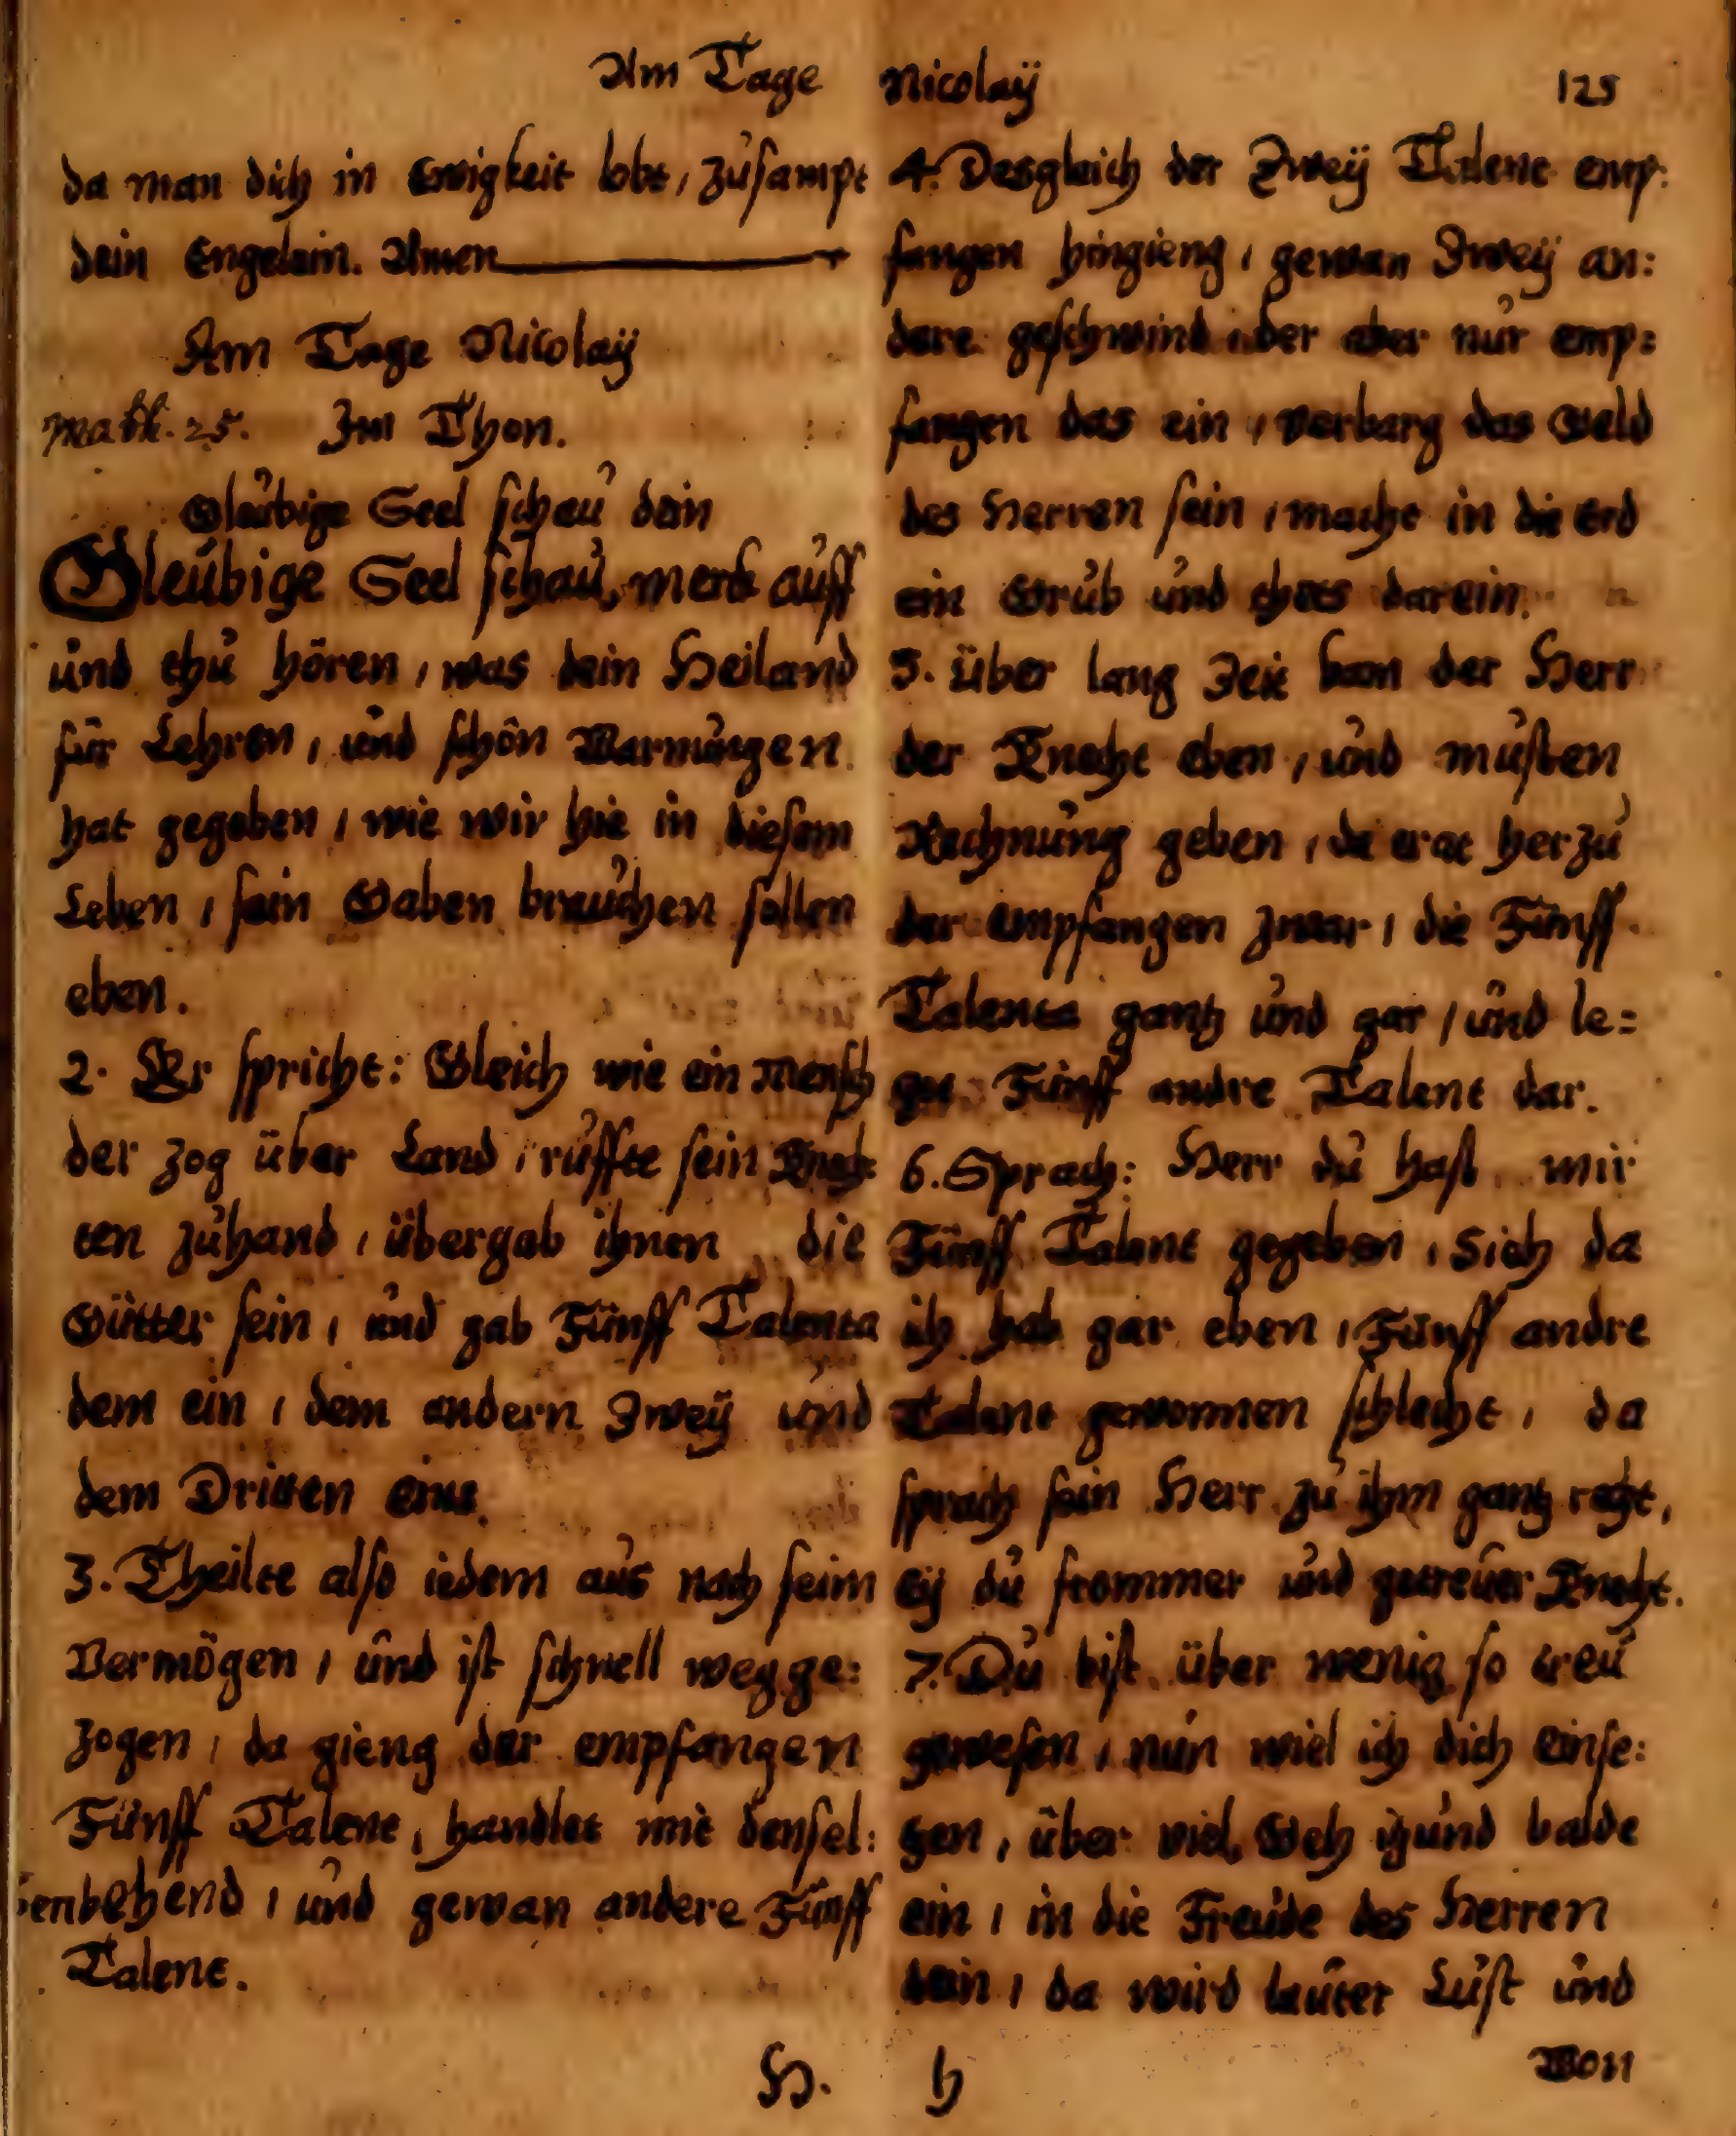 Am Tage Nicolaÿ 125
da man dich in Ewigkeit lobt, zusampt
dein Engelein. Amen
Am Tage Nicolaÿ
Math. 25. Im Thon.
Gleubige Seel schau dein
Gleubige Seel schau, merk auff
und thu hören, was dein Heiland
für Lehren, und schön Warnungen
hat gegeben, wie wir hie in diesem
Leben, sein Gaben brauchen sollen
eben.
2. Er spricht: Gleich wie ein Mensch
der zog über Land, ruffte sein Knech
ten zuhand, übergab ihnen die
Gütter sein, und gab Fünff Talenta
dem ein, dem andern Zweÿ und
dem Dritten eins.
3. Theilte also iedem aus nach seim
Vermögen, und ist schnell wegge:
zogen, da gieng der empfangen
Fünff Talent, handlet mit densel:
benbehend, und gewan andere Fünff
Talent.
4. Desgleich der Zweÿ Talent emp:
fangen hingieng, gewan Zweÿ an:
dere geschwind, der aber nur emp:
fangen das ein, verbarg das Geld
des Herren sein, macht in die Erd
ein Grub und thets darein.
5. über lang Zeit kam der Herr
der Knecht eben, und musten
Rechnung geben, da trat herzu
der empfangen zwar, die Fünff
Talenta gantz und gar, und le:
get Fünff andre Talent dar.
6. Sprach: Herr du hast mir
Fünff Talent gegeben, Sieh da
ich hab gar eben, Fünff andre
Talent gewonnen schlecht, da
sprach sein Herr zu ihm gantz recht,
eÿ du frommer und getreuer Knecht.
7. Du bist über wenig so treu
gewesen, nun wiel ich dich einse:
tzen, über viel, Geh itzund balde
ein, in die Freude des Herren
dein, da wird lauter Lust und
H. h Won